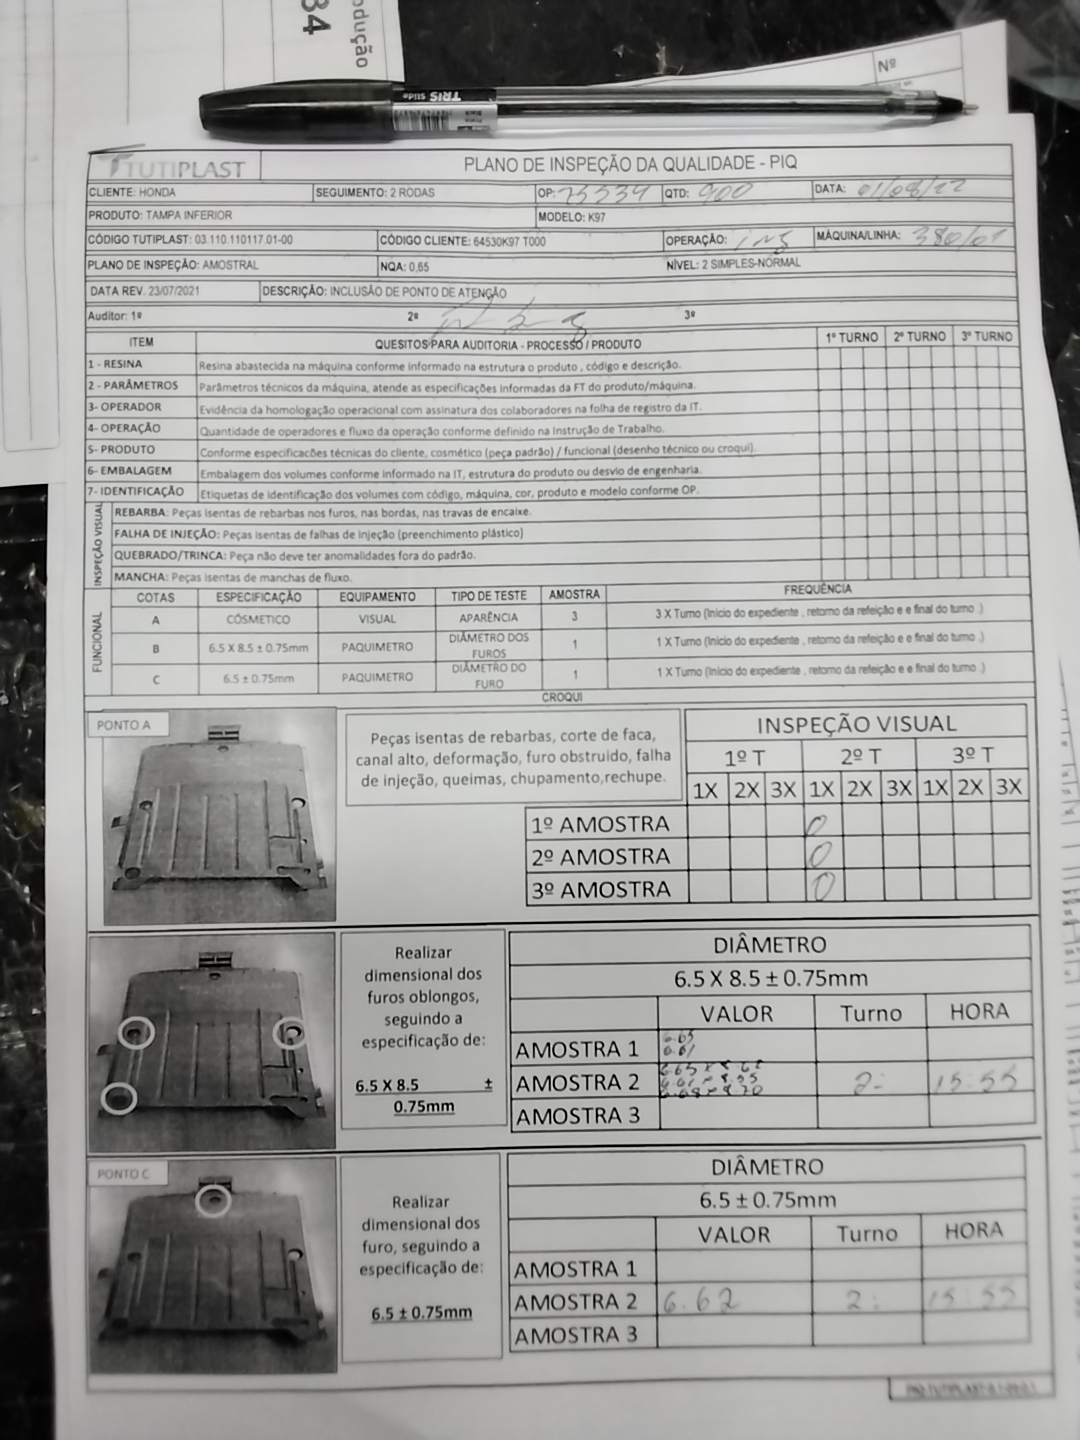 34
odução
Nº
TRIS
Slide
TUTIPLAST
PLANO DE INSPEÇÃO DA QUALIDADE - PIQ
CLIENTE: HONDA SEGUIMENTO: 2 RODAS OP: QTD: 900 DATA: 01/08/22
PRODUTO: TAMPA INFERIOR MODELO: K97
CÓDIGO TUTIPLAST: 03.110.110117.01-00 CÓDIGO CLIENTE: 64530K97 T000 OPERAÇÃO: MÁQUINA/LINHA:
PLANO DE INSPEÇÃO: AMOSTRAL NQA: 0,65 NÍVEL: 2 SIMPLES-NORMAL
DATA REV. 23/07/2021 DESCRIÇÃO: INCLUSÃO DE PONTO DE ATENÇÃO
Auditor: 1º 2º 3º
ITEM QUESITOS PARA AUDITORIA - PROCESSO / PRODUTO 1º TURNO 2º TURNO 3º TURNO
1 - RESINA Resina abastecida na máquina conforme informado na estrutura o produto , código e descrição.
2 - PARÂMETROS Parâmetros técnicos da máquina, atende as especificações informadas da FT do produto/máquina.
3- OPERADOR Evidência da homologação operacional com assinatura dos colaboradores na folha de registro da IT.
4- OPERAÇÃO Quantidade de operadores e fluxo da operação conforme definido na Instrução de Trabalho.
5- PRODUTO Conforme especificacões técnicas do cliente, cosmético (peça padrão) / funcional (desenho técnico ou croqui).
6- EMBALAGEM Embalagem dos volumes conforme informado na IT, estrutura do produto ou desvio de engenharia.
7- IDENTIFICAÇÃO Etiquetas de identificação dos volumes com código, máquina, cor, produto e modelo conforme OP.
INSPEÇÃO VISUAL
REBARBA: Peças isentas de rebarbas nos furos, nas bordas, nas travas de encaixe.
FALHA DE INJEÇÃO: Peças isentas de falhas de injeção (preenchimento plástico)
QUEBRADO/TRINCA: Peça não deve ter anomalidades fora do padrão.
MANCHA: Peças isentas de manchas de fluxo.
FUNCIONAL
COTAS ESPECIFICAÇÃO EQUIPAMENTO TIPO DE TESTE AMOSTRA FREQUÊNCIA
A CÓSMETICO VISUAL APARÊNCIA 3 3 X Turno (Inicio do expediente , retorno da refeição e e final do turno .)
B 6.5 X 8.5 ± 0.75mm PAQUIMETRO DIÂMETRO DOS FUROS 1 1 X Turno (Inicio do expediente , retorno da refeição e e final do turno .)
C 6.5 ± 0.75mm PAQUIMETRO DIÂMETRO DO FURO 1 1 X Turno (Inicio do expediente , retorno da refeição e e final do turno .)
CROQUI
PONTO A
Peças isentas de rebarbas, corte de faca,
canal alto, deformação, furo obstruido, falha
de injeção, queimas, chupamento,rechupe.
INSPEÇÃO VISUAL
1º T 2º T 3º T
1X 2X 3X 1X 2X 3X 1X 2X 3X
1º AMOSTRA 0
2º AMOSTRA 0
3º AMOSTRA 0
Realizar
dimensional dos
furos oblongos,
seguindo a
especificação de:
6.5 X 8.5 ±
0.75mm
DIÂMETRO
6.5 X 8.5 ± 0.75mm
VALOR Turno HORA
AMOSTRA 1
AMOSTRA 2 2: 15:55
AMOSTRA 3
PONTO C
Realizar
dimensional dos
furo, seguindo a
especificação de:
6.5 ± 0.75mm
DIÂMETRO
6.5 ± 0.75mm
VALOR Turno HORA
AMOSTRA 1
AMOSTRA 2 6.62 2: 15:55
AMOSTRA 3